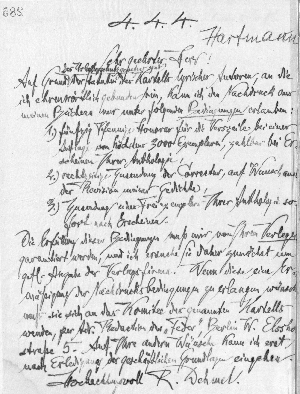 685.
4.4.4
Hartmann
Sehr geehrter Herr!
Auf Grund der Satzungen des Kartells lyrischer Autoren, an die
ich ehrenwörtlich gebunden bin, kann ich den Nachdruck aus
meinen Büchern nur unter folgenden Bedingungen erlauben:
1) fünfzig Pfennige Honorar für die Verszeile bei einer
Auflage von höchstens 3000 Exemplaren, zahlbar bei Er-
scheinen Ihrer Anthologie
2) rechtzeitige Zusendung der Correctur, auf Wunsch auch
der Revision meiner Gedichte;
3) Zusendung eines Freiexemplars Ihrer Anthologie so-
fort nach Erscheinen.
Die Erfüllung dieser Bedingungen muß mir von Ihrem Verleger
garantiert werden, und ich ersuche Sie daher zunächst um
gefl. Angabe der Verlagsfirma. Wenn Sie eine Er-
mäßigung der Nachdrucksbedingungen zu erlangen wünschen,
muß sie sich an das Komitee des genannten Kartells
wenden, per Adr. Redaction der "Feder", Berlin W. Elsholz-
straße 5. Auf Ihre andern Wünsche kann ich erst
nach Erledigung der geschäftlichen Grundlagen eingehen.
Hochachtungsvoll R. Dehmel.